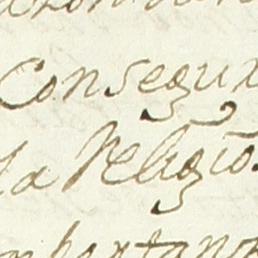 Consequx
la Religio
mportan